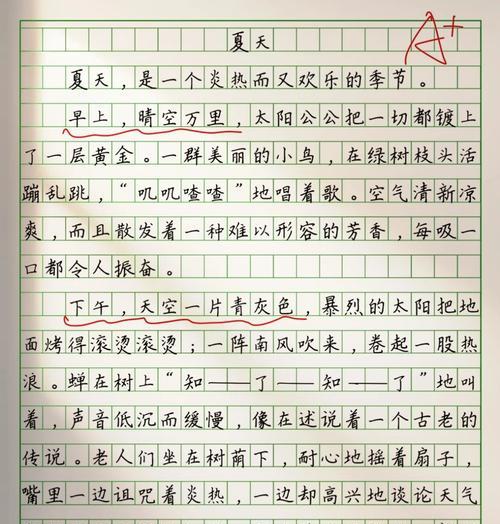 A+
夏天
夏天，是一个炎热而又欢乐的季节。
早上，晴空万里，太阳公公把一切都镀上
了一层黄金。一群美丽的小鸟，在绿树枝头活
蹦乱跳，“叽叽喳喳”地唱着歌。空气清新凉
爽，而且散发着一种难以形容的芳香，每吸一
口都令人振奋。
下午，天空一片青灰色，暴烈的太阳把地
面烤得滚烫滚烫；一阵南风吹来，卷起一股热
浪。蝉在树上“知——了——知——了”地叫
着，声音低沉而缓慢，像在述说着一个古老的
传说。老人们坐在树荫下，耐心地摇着扇子，
嘴里一边诅咒着炎热，一边却高兴地谈论天气